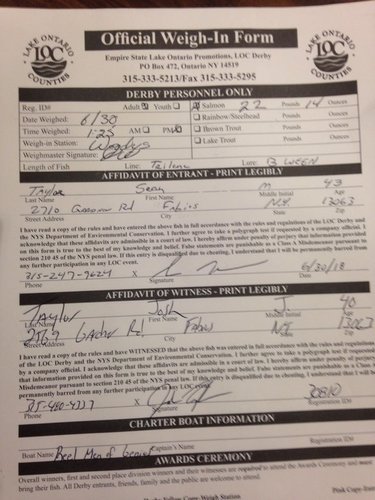 LAKE ONTARIO
LOC
COUNTIES
Official Weigh-In Form
Empire State Lake Ontario Promotions, LOC Derby
PO Box 472, Ontario NY 14519
315-333-5213/Fax 315-333-5295
LAKE ONTARIO
LOC
COUNTIES
DERBY PERSONNEL ONLY
Reg. ID# Adult Youth Salmon 22 Pounds 14 Ounces
Date Weighed: 6/30 Rainbow/Steelhead Pounds Ounces
Time Weighed: 1:23 AM PM Brown Trout Pounds Ounces
Weigh-in Station: Woodys Lake Trout Pounds Ounces
Weighmaster Signature:
Length of Fish Line: Lure:
AFFIDAVIT OF ENTRANT - PRINT LEGIBLY
Taylor Sean M 43
Last Name First Name Middle Initial Age
2710 Rd Fabius N.Y. 13063
Street Address City State Zip
I have read a copy of the rules and have entered the above fish in full accordance with the rules and regulations of the LOC Derby and
the NYS Department of Environmental Conservation. I further agree to take a polygraph test if requested by a company official. I
acknowledge that these affidavits are admissible in a court of law. I hereby affirm under penalty of perjury that information provided
on this form is true to the best of my knowledge and belief. False statements are punishable as a Class A Misdemeanor pursuant to
section 210 45 of the NYS penal law. If this entry is disqualified due to cheating, I understand that I will be permanently barred from
any further participation in any LOC event.
315-247-7624 X 6/30/18
Phone Signature Date
AFFIDAVIT OF WITNESS - PRINT LEGIBLY
Taylor Josh J. 40
Last Name First Name Middle Initial Age
Rd Fabius NY
Street Address City State Zip
I have read a copy of the rules and have WITNESSED that the above fish was entered in full accordance with the rules and regulations
of the LOC Derby and the NYS Department of Environmental Conservation. I further agree to take a polygraph test if requested
by a company official. I acknowledge that these affidavits are admissible in a court of law. I hereby affirm under penalty of perjury
that information provided on this form is true to the best of my knowledge and belief. False statements are punishable as a Class A
Misdemeanor pursuant to section 210 45 of the NYS penal law. If this entry is disqualified due to cheating, I understand that I will be
permanently barred from any further participation in any LOC event.
315-480-4337 X 30810
Phone Signature Registration ID#
CHARTER BOAT INFORMATION
Boat Name Reel Men of Genius Captain's Name Registration ID#
AWARDS CEREMONY
Overall winners, first and second place division winners and their witnesses are required to attend the Awards Ceremony and must
bring their fish. All Derby entrants, friends, family and the public are welcome to attend.
Copy-Weigh Station Pink Copy-